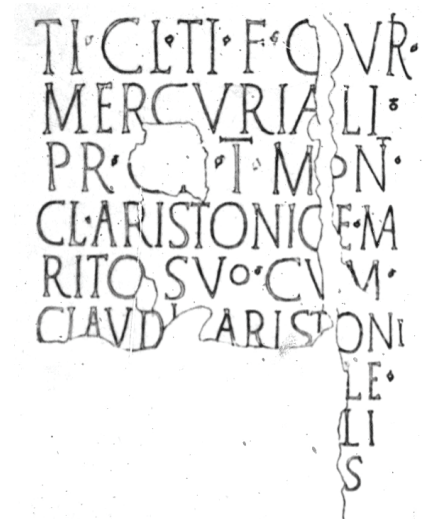 TI·CL·TI·F·QVR·
MERCVRIALI·
PR·C ·Ī·MON̅·
CL·ARISTONICE·MA
RITO SVO·CVM·
CLAVDI ARISTONI
LE·
LI
S